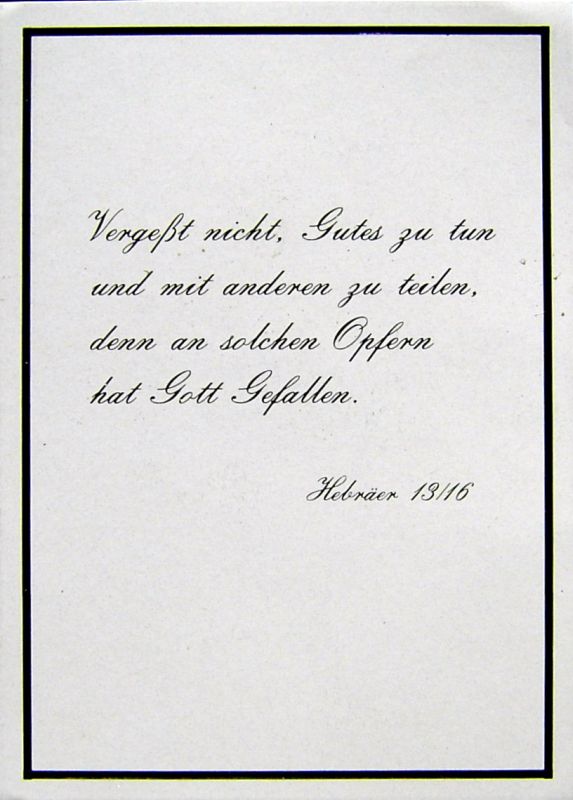 Vergeßt nicht, Gutes zu tun
und mit anderen zu teilen,
denn an solchen Opfern
hat Gott Gefallen.
Hebräer 13/16